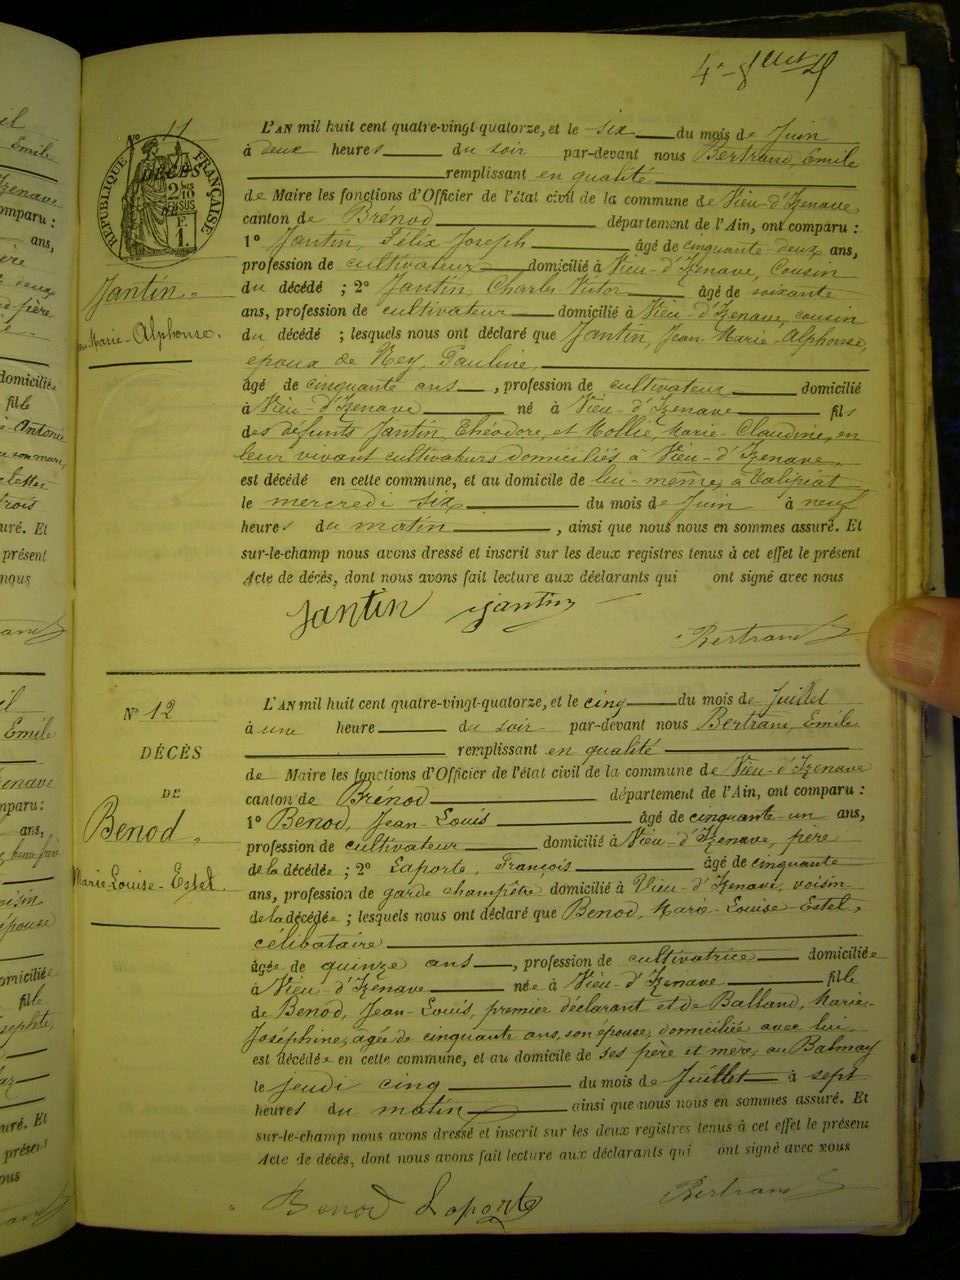 4e
N° 11
RÉPUBLIQUE FRANÇAISE
DÉCÈS
2/10 EN SUS
1 F.
Jantin
Jean-Marie-Alphonse.
L'AN mil huit cent quatre-vingt-quatorze, et le six du mois de Juin
à deux heures du soir par-devant nous Bertrand, Emile
remplissant en qualité
de Maire les fonctions d'Officier de l'état civil de la commune de Vieu-d'Izenave
canton de Brénod département de l'Ain, ont comparu :
1° Jantin, Félix-Joseph âgé de cinquante-deux ans,
profession de cultivateur domicilié à Vieu-d'Izenave, cousin
du décédé ; 2° Jantin, Charles Victor âgé de soixante
ans, profession de cultivateur domicilié à Vieu-d'Izenave, cousin
du décédé ; lesquels nous ont déclaré que Jantin, Jean-Marie-Alphonse,
époux de Rey, Pauline,
âgé de cinquante ans, profession de cultivateur domicilié
à Vieu-d'Izenave né à Vieu-d'Izenave fils
des défunts Jantin, Théodore, et Mollie, Marie-Claudine, en
leur vivant cultivateurs domiciliés à Vieu-d'Izenave,
est décédé en cette commune, et au domicile de lui-même, à Talipiat
le mercredi six du mois de Juin à neuf
heures du matin, ainsi que nous nous en sommes assuré. Et
sur-le-champ nous avons dressé et inscrit sur les deux registres tenus à cet effet le présent
Acte de décès, dont nous avons fait lecture aux déclarants qui ont signé avec nous
Jantin Jantin
Bertrand
N° 12
DÉCÈS
DE
Benod
Marie-Louise-Estel.
L'AN mil huit cent quatre-vingt-quatorze, et le cinq du mois de Juillet
à une heure du soir par-devant nous Bertrand, Emile
remplissant en qualité
de Maire les fonctions d'Officier de l'état civil de la commune de Vieu-d'Izenave
canton de Brénod département de l'Ain, ont comparu :
1° Benod, Jean-Louis âgé de cinquante-un ans,
profession de cultivateur domicilié à Vieu-d'Izenave, père
de la décédée ; 2° Laporte, François âgé de cinquante
ans, profession de garde champêtre domicilié à Vieu-d'Izenave, voisin
de la décédée ; lesquels nous ont déclaré que Benod, Marie-Louise-Estel,
célibataire
âgée de quinze ans, profession de cultivatrice domiciliée
à Vieu-d'Izenave née à Vieu-d'Izenave fille
de Benod, Jean-Louis, premier déclarant et de Balland, Marie-
Joséphine, agée de cinquante ans, son épouse, domiciliée avec lui,
est décédée en cette commune, et au domicile de ses père et mère, au Balmay
le jeudi cinq du mois de Juillet à sept
heures du matin ainsi que nous nous en sommes assuré. Et
sur-le-champ nous avons dressé et inscrit sur les deux registres tenus à cet effet le présent
Acte de décès, dont nous avons fait lecture aux déclarants qui ont signé avec nous
Benod Laporte
Bertrand